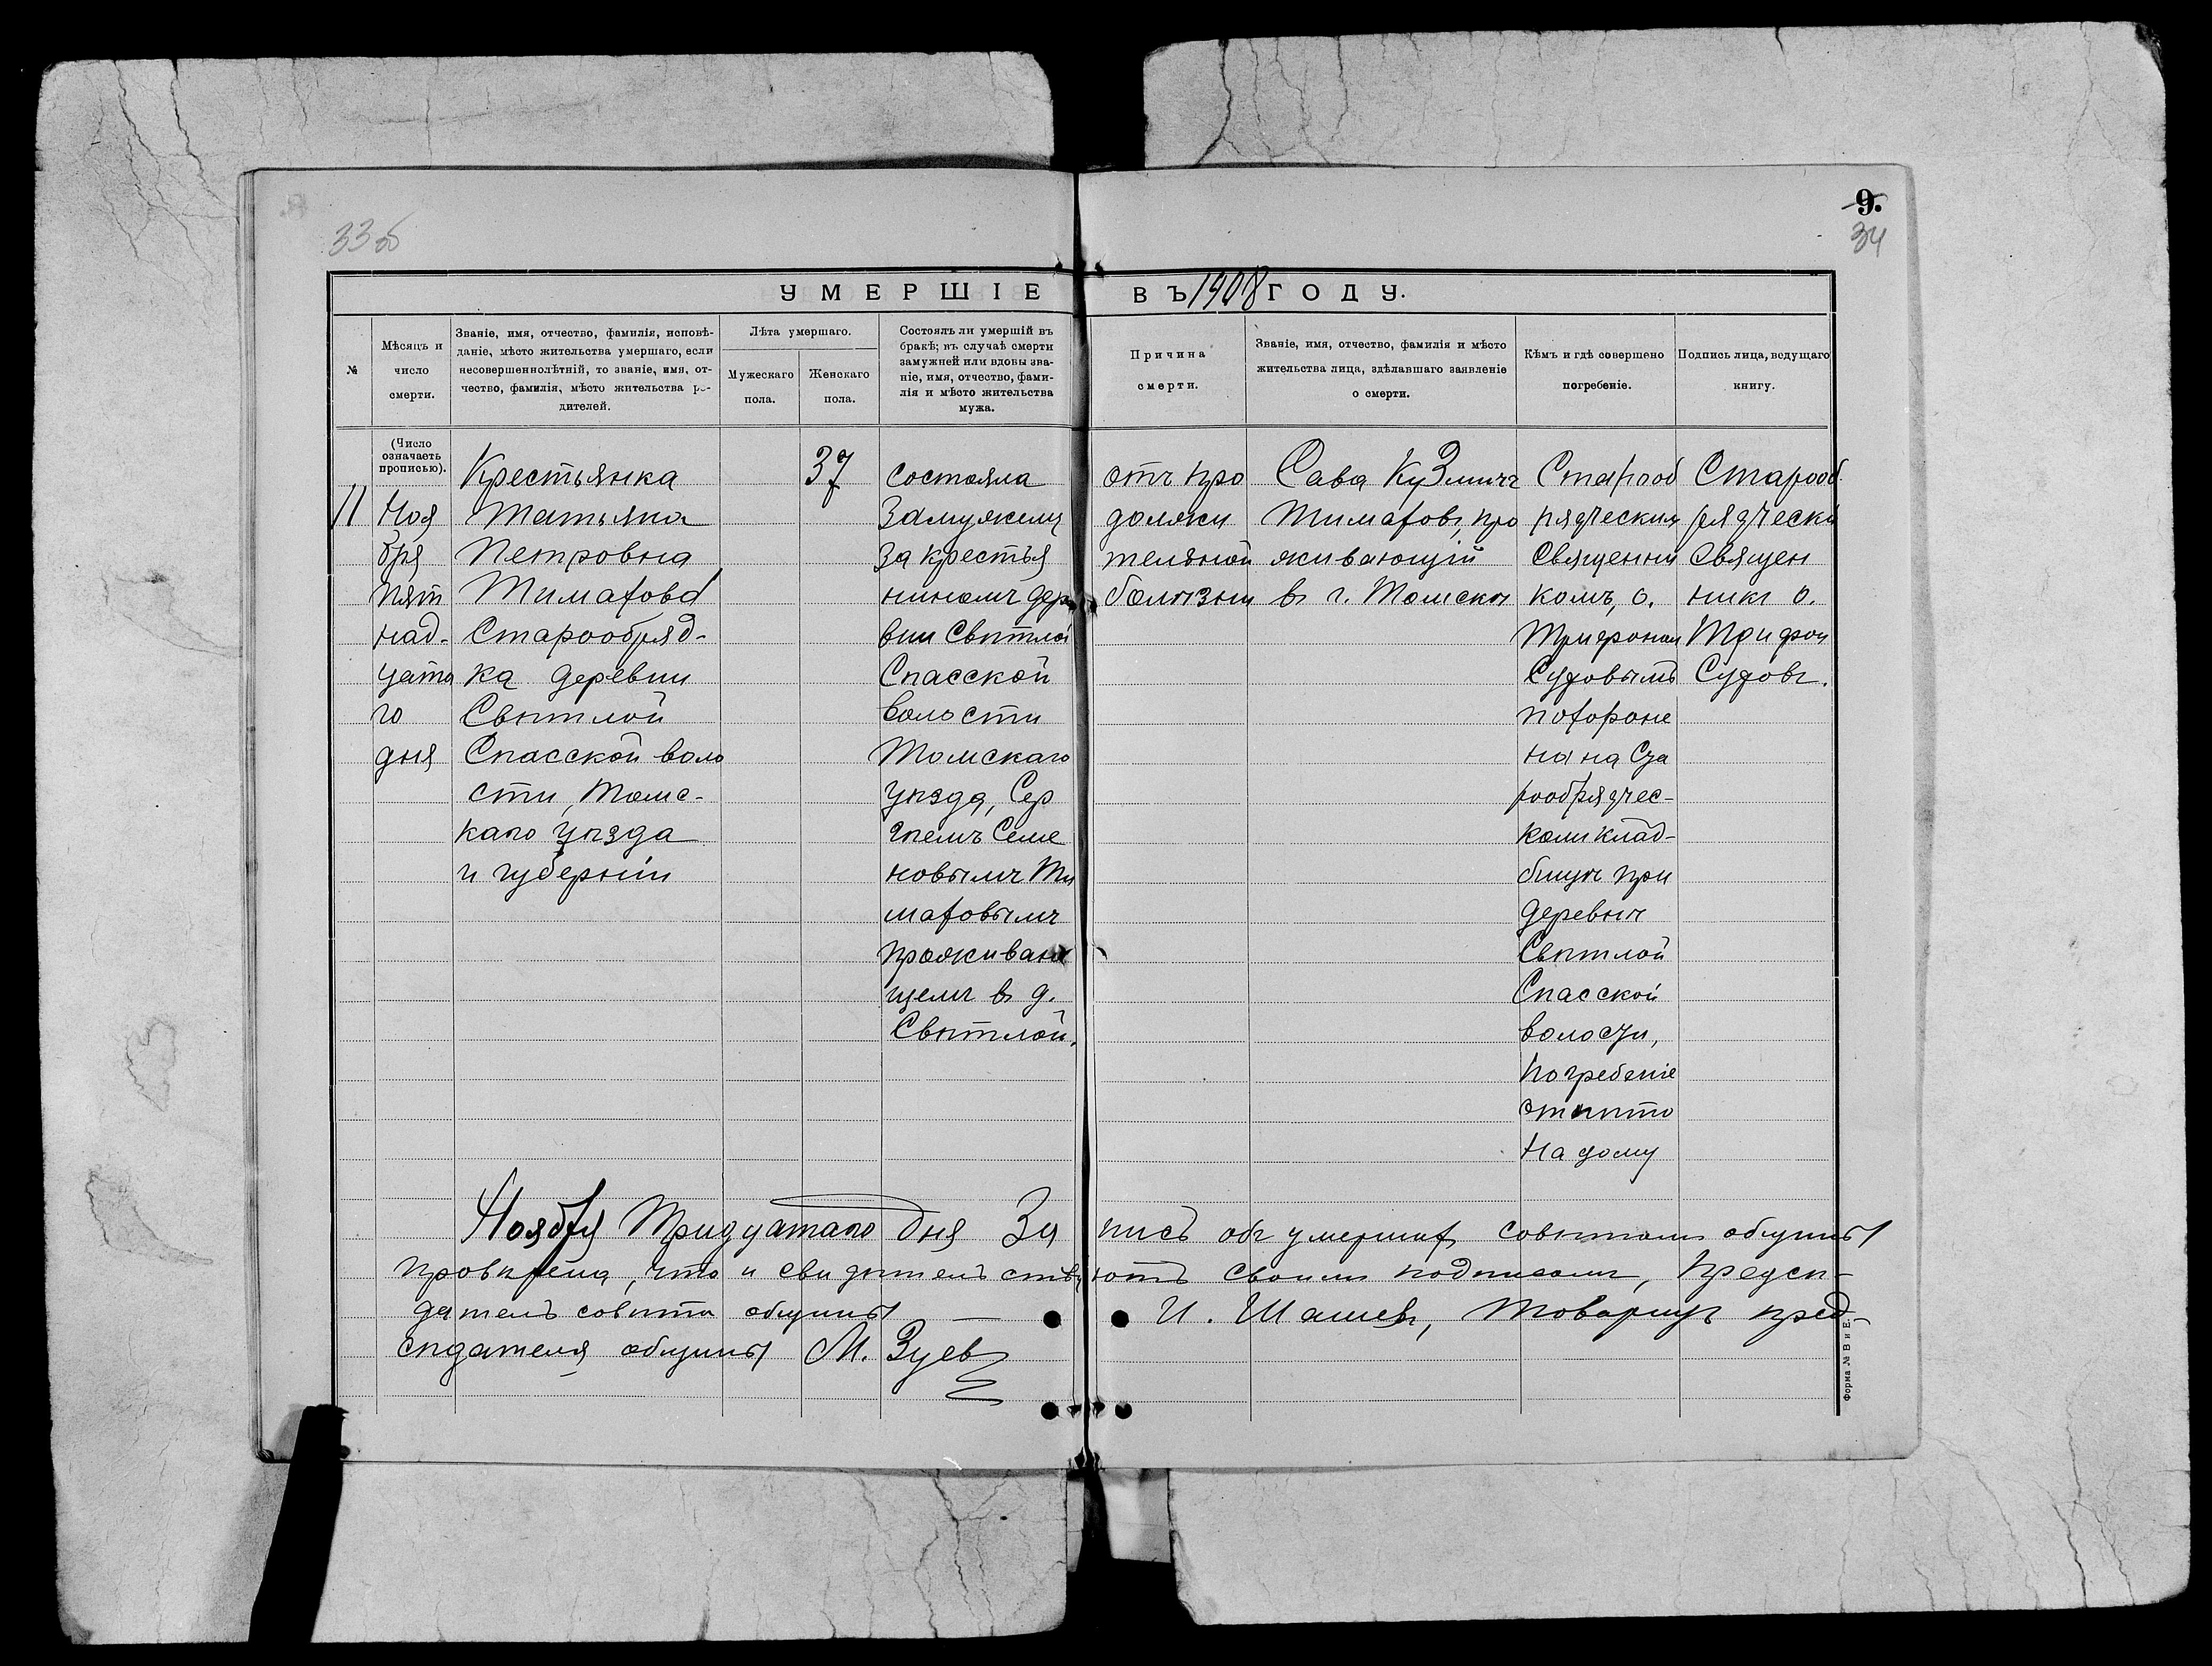 33об
9.
34
УМЕРШІЕ ВЪ 1908 ГОДУ.
№
Мѣсяцъ и
число
смерти.
Званіе, имя, отчество, фамилія, исповѣ-
даніе, мѣсто жительства умершаго, если
несовершеннолѣтній, то званіе, имя, от-
чество, фамилія, мѣсто жительства ро-
дителей.
Лѣта умершаго.
Мужескаго
пола.
Женскаго
пола.
Состоялъ ли умершій въ
бракѣ; въ случаѣ смерти
замужней или вдовы зва-
ніе, имя, отчество, фами-
лія и мѣсто жительства
мужа.
Причина
смерти.
Званіе, имя, отчество, фамилія и мѣсто
жительства лица, здѣлавшаго заявленіе
о смерти.
Кѣмъ и гдѣ совершено
погребеніе.
Подпись лица, ведущаго
книгу.
(Число
означаеть
прописью).
11
Ноя
бря
пят
над-
цата
го
дня
Крестьянка
Татьяна
Петровна
Тимахова
Старообряд-
ка деревни
Свѣтлой
Спасской воло
сти, Томс-
каго уѣзда
и губерніи
37
состояла
замужемъ
за крестья
ниномъ дер
вни Свѣтлой
Спасской
волости
Томскаго
уѣзда, Сер
гѣемъ Семе
новымъ Ти
маховымъ
проживаю
щемъ въ д.
Свѣтлой.
отъ про
должи
тельной
болѣзни
Сава Кузмичъ
Тимаховъ, про
живающій
въ г. Томскѣ
Старооб
рядческимъ
священни
комъ, о.
Трифоном
Суховымъ
похороне
на на Ста
рообрядчес-
комъ клад-
бищѣ при
деревнѣ
Свѣтлой
Спасской
волости,
погребеніе
отпѣто
на дому
Старооб
рядчески
священ
никъ о.
Трифон
Суховъ.
Ноября Тридцатаго дня Запись объ умерших совѣтом общины
провѣрена, что и свидѣтельствуютъ своими подписами, предсѣ-
датель совѣта общины — И. Шашевъ, товарищъ пред-
сѣдателя общины М. Зуев
Форма № В и Е.